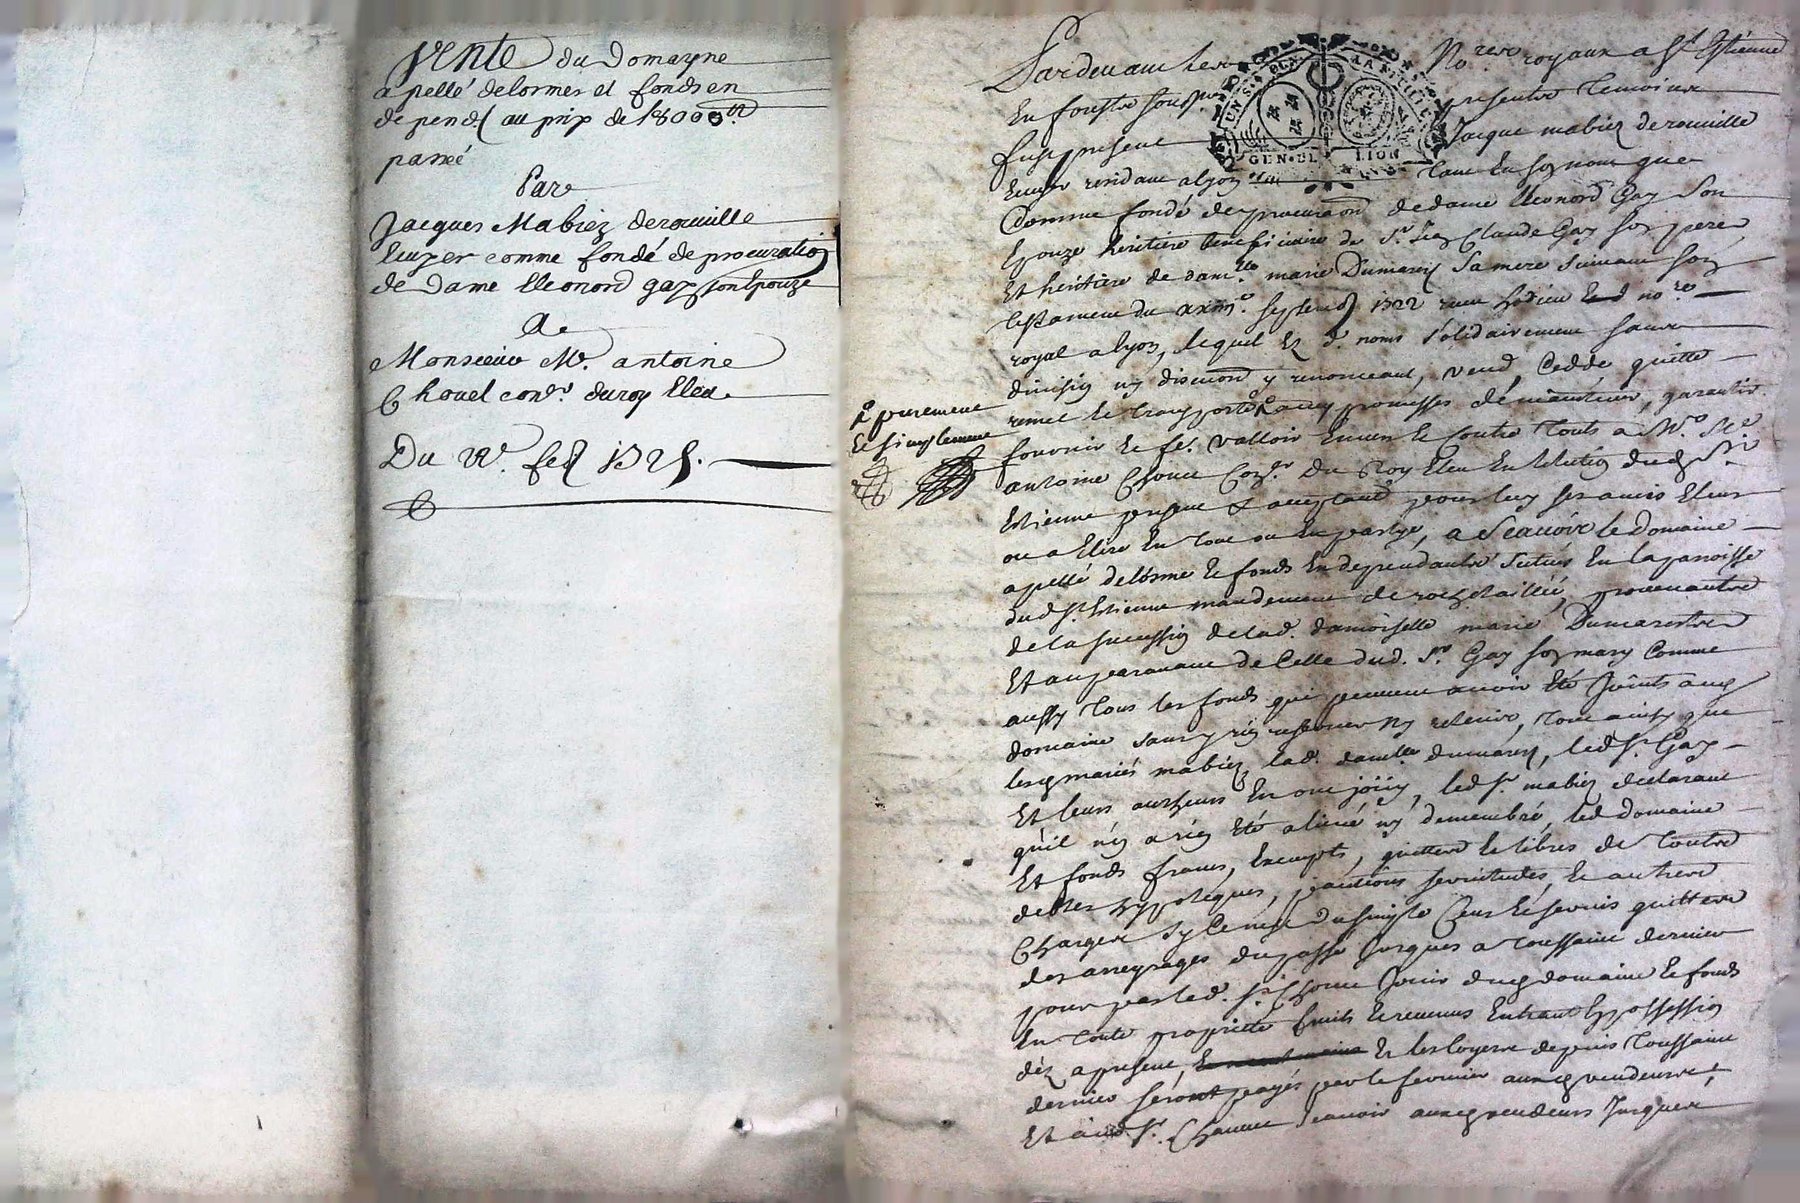 Vente du Domayne
apellé delormes et fonds en
depend. au prix de 18000tt
passé
Par
Jacques Mabiez derouville
Ecuyer comme fondé de procuration
de Dame Eleonord gay son Epouze
A
Monsieur Mr. antoine
Chovel conr. du roy Elea.
Du fev 1725.
Pardevant les Nores royaux a St Estienne
En forestz soussignes presents Temoins
fust present Jacque mabiez derouville
Ecuyer residant a lyon tant En son nom que
Comme fondé de procuraon de dame Eleonord Gay Son
Epouze heritiere beneficiaire de Sr. Jean Claude Gay son pere
Et héritiere de damlle marie Dumarest Sa mere Suivant son
testament du Septemb 1722 receu hodieu no.re
royal a lyon, lequel Ez d. noms solidairement sans
division ny discution y renonceant, vend, Cedde, quitte
remet et transporte avec promesses de maintenir, garantir
purement
Et simplement
fournir et fe. valloir Envers et Contre touts a Mr. Me
antoine Chovel Conr. Du Roy Eleu En lelection dud St
Estienne present & acceptant pour luy ses amis Eleus
ou a Elire En tout ou En partye, a Scavoir le Domaine
apellé delorme et fonds En dependants Scitués En la parroisse
dud St Estienne mandement de rochetaillée, provenants
de la succession de lad. damoiselle marie Dumarest
Et auparavant de Celle dud. Sr. Gay son mary Comme
aussy tous les fonds qui peuvent avoir Eté Joints aud
domaine sans y rien reserver ny retenir, tout ainsy que
lesd mariés mabiez lad. damlle dumarest, led Sr. Gay
Et leurs autheurs En ont jouy, led Sr. mabiez declarant
quil n'en a rien Eté aliené ny demembré, led domaine
Et fonds francs, Exempts, quittes et libres de toutes
debtes hypoteques, pentions servitudes, et autres
Charges sy ce nest du simple Cens et servis quittes
des arreyrages du passé Jusques a toussaint dernier
pour par led. Sr. Chovel Jouir dud domaine et fonds
En toute propriété fruits et revenus Entrant En possession
déz a present, Et les loyers depuis toussaint
dernier seront payés par le fermier auxd vendeurs,
Et aud. Sr. Chovel scavoir auxd vendeurs Jusques